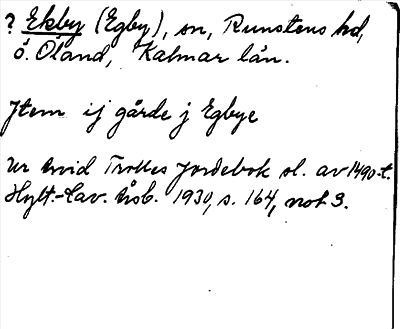 ? Ekby (Egby), sn, Runstens hd,
ö. Öland, Kalmar län.
Jtem ij gårde j Egbye
Ur Arvid Trolles jordebok sl. av 1490-t.
Hylt.-Cav. Årsb. 1930, s. 164, not 3.